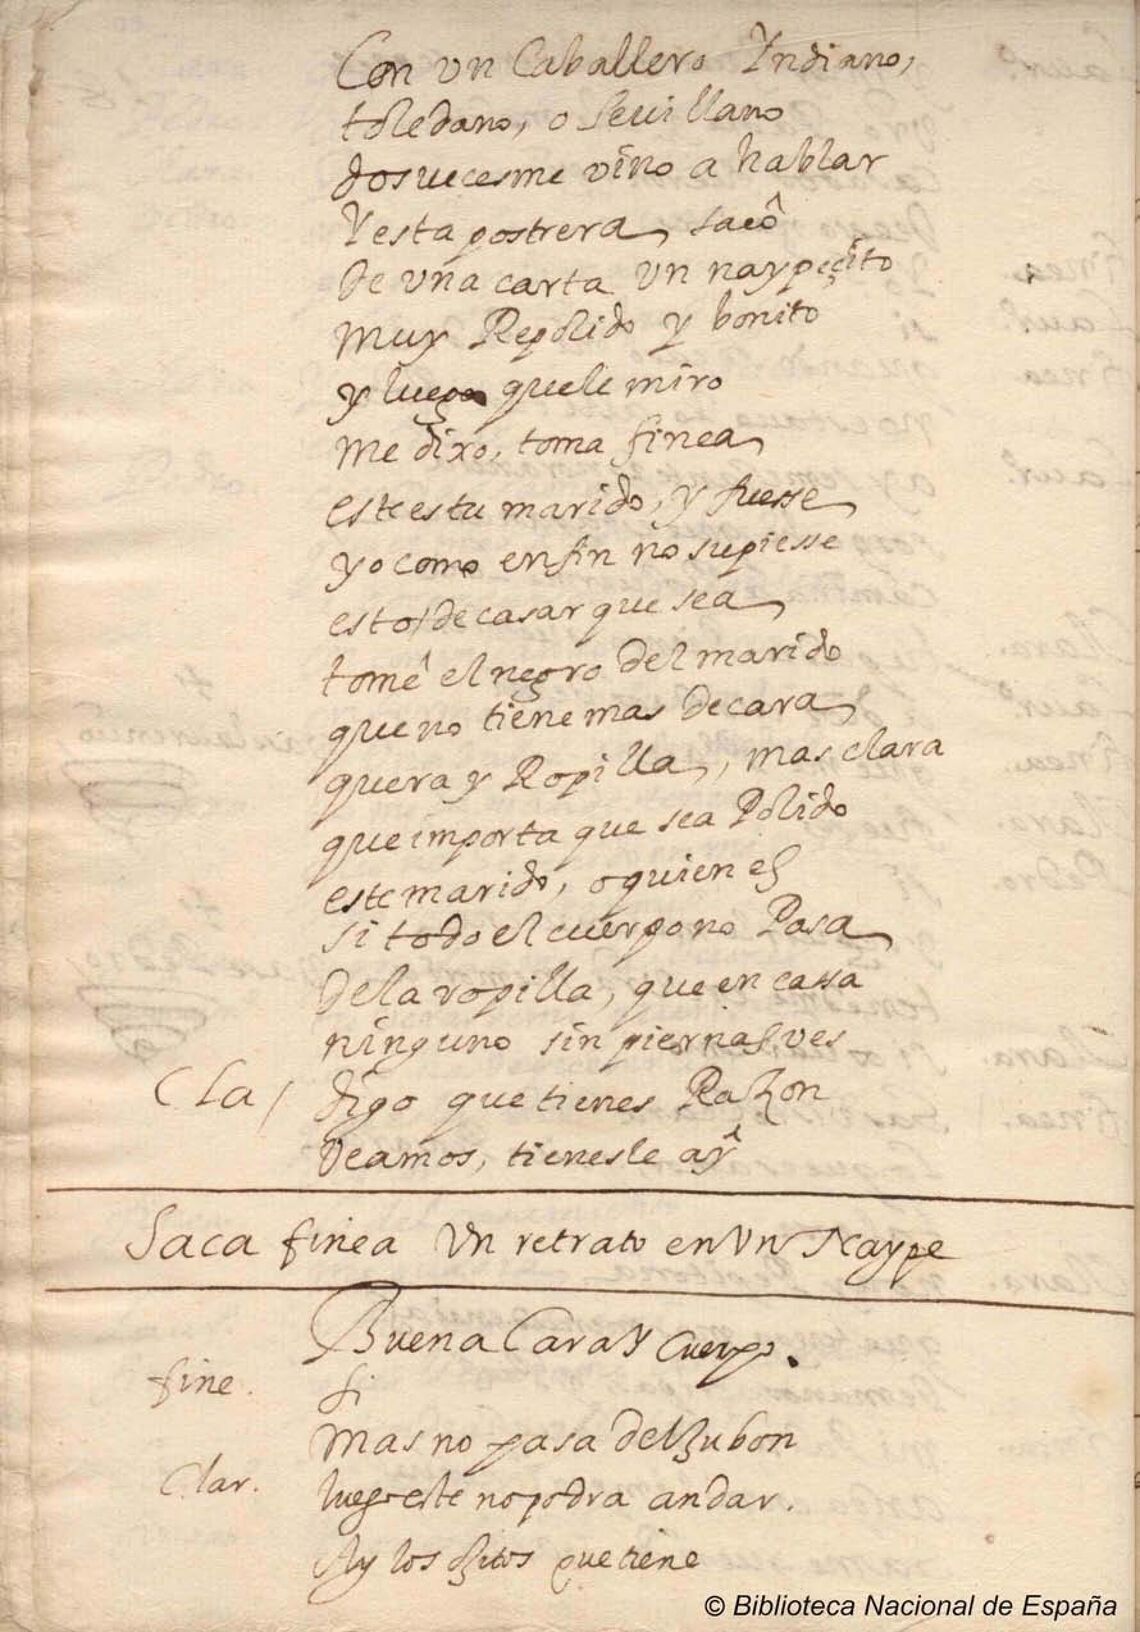 Con un Caballero Yndiano,
toledano, o seuillano
dos ueces me vino a hablar
Y esta postrera, sacô
De vna carta un naypecito
muy Repolido y bonito
y luego que le miro
me dixo, toma finea,
este es tu marido, y fuesse
yo como en fin no supiesse
esto / de casar que sea,
tomê el negro del marido
que no tiene mas de cara,
quera y Ropilla, mas clara
que importa que sea Polido
este marido, o quien es
si todo el cuerpo no Pasa
De la ropilla, que en cassa
ninguno sin piernas ves
Cla / digo que tienes Razon
Veamos, tienesle aŷ
Saca finea Un retrato en Un Naype
Buena Cara Y Cuerpo.
fine. si
mas no pasa del Jubon
Clar. luego este no podra andar.
Ay los ojitos que tiene
© Biblioteca Nacional de España